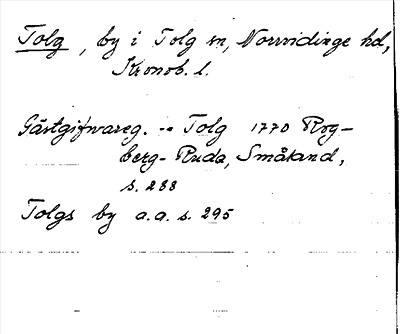 Tolg, by i Tolg sn, Norrvidinge hd,
Kronob. l.
Gästgifwareg. -- Tolg 1770 Rog-
berg-Ruda, Småland,
s. 288
Tolgs by a.a. s. 295